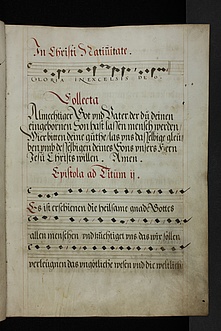 In Christi Natiuitate.
GLORIA IN EXCELSIS DEO.
Collecta
Almechtiger Got vnd Vater der du deinen
eingebornen Son hast lassen mensch werden
Wir bitten deine güthe las vns dasselbige gleu
ben vnd desselbigen deines Sons vnsers Hern
Jesu Christs willen. Amen.
Epistola ad Titum ij.
Es ist erschienen die heilsame gnad Gottes
allen menschen vnd züchtiget vns das wir sollen
verleugnen das vngötliche wesen vnd die weltlich